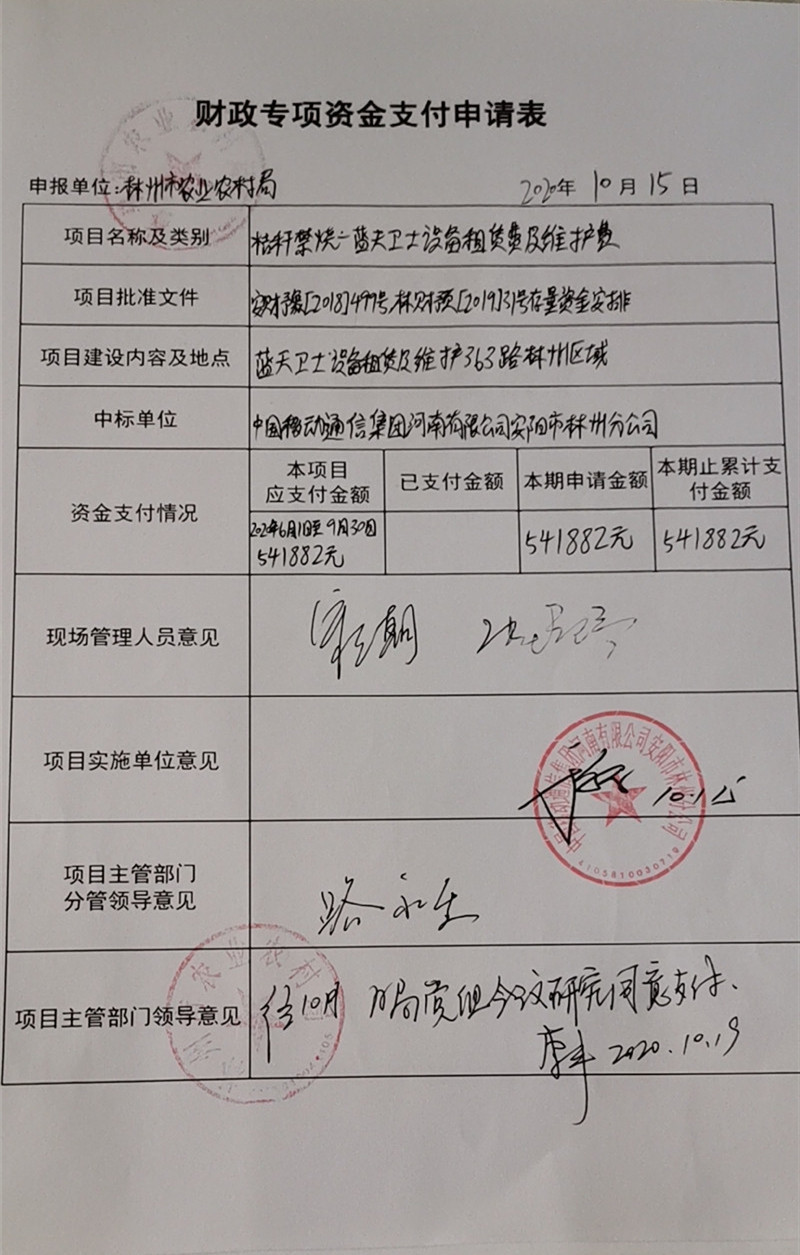 财政专项资金支付申请表
申报单位:林州市农业农村局 2020年 10月 15日
项目名称及类别 秸秆禁烧-蓝天卫士设备租赁费及维护费
项目批准文件 安财预[2018]497号 林财预[2019]31号存量资金安排
项目建设内容及地点 蓝天卫士设备租赁及维护363路林州区域
中标单位 中国移动通信集团河南有限公司安阳市林州分公司
资金支付情况
本项目
应支付金额
已支付金额 本期申请金额
本期止累计支
付金额
2020年6月1日至9月30日
541882元
541882元 541882元
现场管理人员意见
项目实施单位意见
中国移动通信集团河南有限公司安阳市林州分公司
4105810030719
项目主管部门
分管领导意见
路永生
项目主管部门领导意见
10月 局党组会议研究同意支付、
2020.10.19